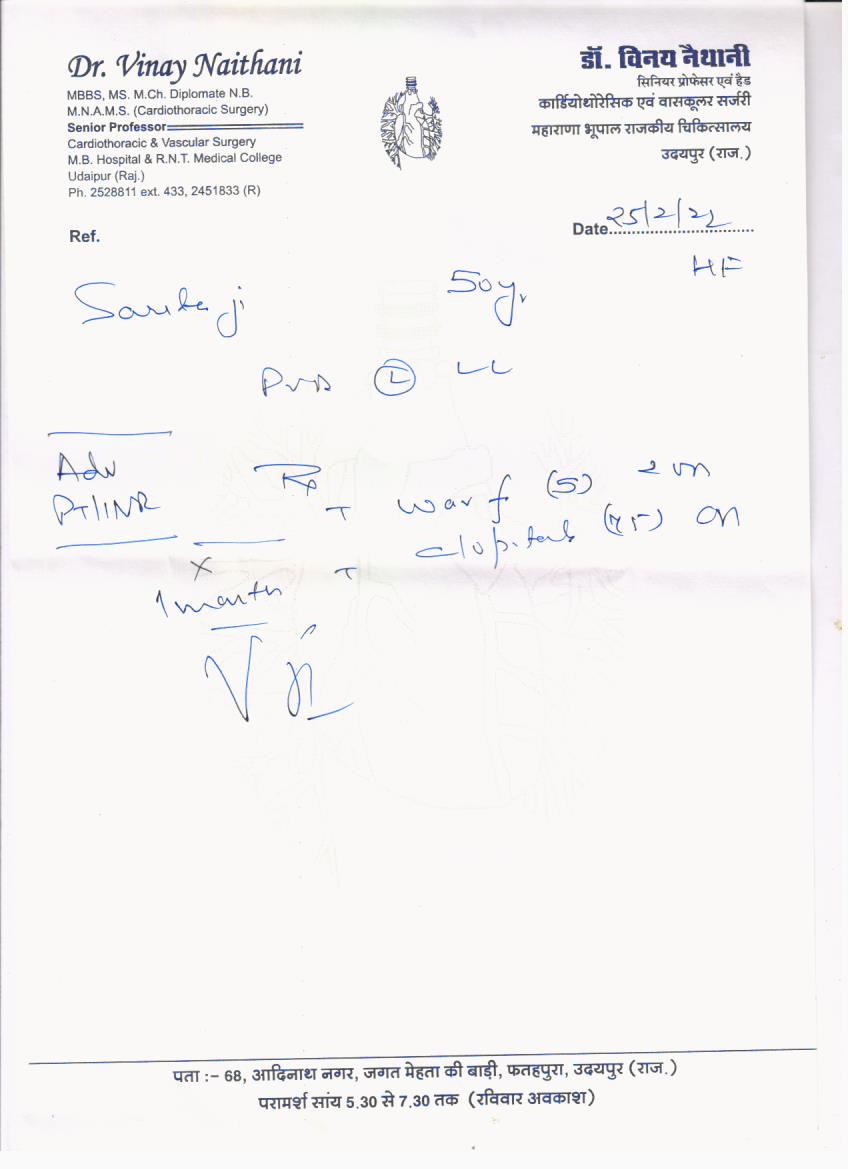 Dr. Vinay Naithani
MBBS, MS. M.Ch. Diplomate N.B.
M.N.A.M.S. (Cardiothoracic Surgery)
Senior Professor
Cardiothoracic & Vascular Surgery
M.B. Hospital & R.N.T. Medical College
Udaipur (Raj.)
Ph. 2528811 ext. 433, 2451833 (R)
डॉ. विनय नैथानी
सिनियर प्रोफेसर एवं हैड
कार्डियोथोरेसिक एवं वासकूलर सर्जरी
महाराणा भूपाल राजकीय चिकित्सालय
उदयपुर (राज.)
Ref.
Date 25/2/22
50y.
L LL
Adv
PT/INR
Rx
T warf (5)
T (75) on
x
1 month
पता :– 68, आदिनाथ नगर, जगत मेहता की बाड़ी, फतहपुरा, उदयपुर (राज.)
परामर्श सांय 5.30 से 7.30 तक (रविवार अवकाश)